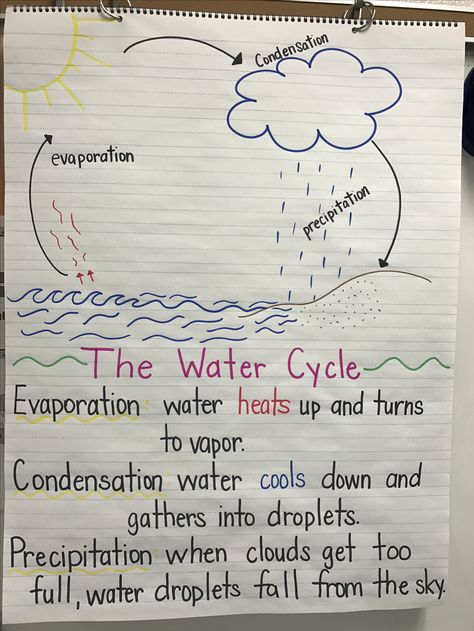 Condensation
evaporation
precipitation
The Water Cycle
Evaporation: water heats up and turns
to vapor.
Condensation: water cools down and
gathers into droplets.
Precipitation: when clouds get too
full, water droplets fall from the sky.